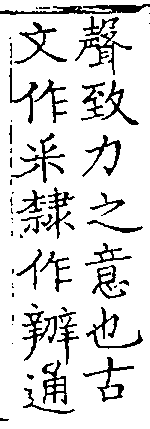 聲致力之意也古
文作釆隸作辦通